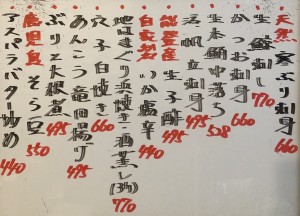 天然 寒ぶり刺身 660
刺し 770
かつお刺し 660
生本鮪中落ち 528
帆立刺身 495
能登産 生子酢 495
自家製 いか塩辛 440
地はまぐり浜焼き・酒蒸し(3ケ) 770
穴子白焼き 660
あんこう竜田揚げ 495
ぶり大根煮 495
鹿児島 そら豆 550
アスパラバター炒め 440